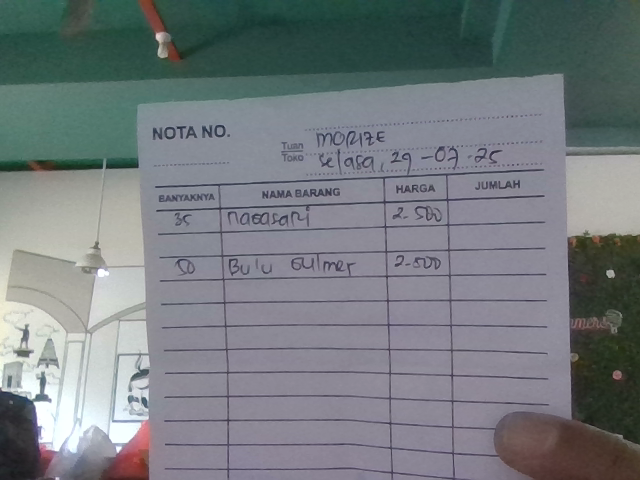 NOTA NO.
Tuan
Toko
MORIZE
Selasa, 29-07-25
BANYAKNYA NAMA BARANG HARGA JUMLAH
35 nagasari 2.500
50 Bulu 2.500